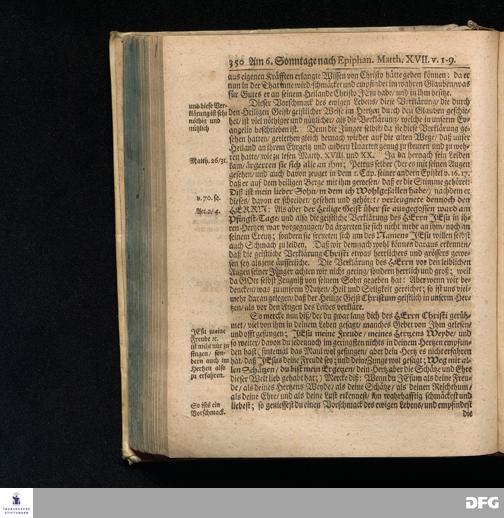 350 Am 6. Sonntage nach Epiphan. Matth. XVII. v. 1-9.
aus eigenen Kräfften erlangte Wissen von Christo hätte geben können: da er
nun in der That inne wird/ schmäcket und empfindet im wahren Glauben/ was
für Gutes er an seinem Heilande Christo JEsu habe/ und in ihm besitze.
Dieser Vorschmack des ewigen Lebens/ diese Verklärung/ die durch
und diese Ver-
klärung ist sehr
nöthig und
nützlich
den Heiligen Geist/ geistlicher Weise im Hertzen durch den Glauben geschie-
het/ ist viel nöthiger und nützlicher/ als die Verklärung/ welche in unserm Ev-
angelio beschrieben ist. Denn die Jünger selbst/ da sie diese Verklärung ge-
sehen hatten/ geriethen gleich hernach wieder auf die alten Wege/ daß unser
Heiland an ihrem Ehrgeitz und andern Unarten genug zu steuren und zu weh-
ren hatte/ wie zu lesen Matth. XVIII. und XX. Ja da hernach sein Leiden
Matth. 26/31.
kam/ ärgerten sie sich alle an ihm; Petrus selber/ der es mit seinen Augen
gesehen/ und auch davon zeuget in dem 1. Cap. seiner andern Epistel v. 16. 17.
daß er auf dem heiligen Berge mit ihm gewesen/ daß er die Stimme gehöret:
Diß ist mein lieber Sohn/ in dem ich Wohlgefallen habe/ nachdem er
v. 70. sq.
dieses/ davon er schreibet/ gesehen und gehört/ verleugnete dennoch den
Act. 2/4.
HERRN: Als aber der Heilige Geist über sie ausgegossen ward am
Pfingst-Tage/ und also die geistliche Verklärung des HErrn JEsu in ih-
ren Hertzen war vorgegangen/ da ärgerten sie sich nicht mehr an ihm/ noch an
seinem Creutz; sondern sie freueten sich um des Namens JEsu willen selbst
auch Schmach zu leiden. Daß wir demnach wohl können daraus erkennen/
daß die geistliche Verklärung Christi etwas herrlichers und grössers gewe-
sen sey als jene äusserliche. Die Verklärung des HErrn vor den leiblichen
Augen seiner Jünger achten wir nicht gering/ sondern herrlich und groß; weil
da GOtt selbst Zeugniß von seinem Sohn gegeben hat: Aber wenn wir be-
dencken/ was zu unserm Nutzen/ Heil und Seligkeit gereichet; so ist uns viel-
mehr daran gelegen/ daß der Heilige Geist Christum geistlich in unsern Her-
tzen/ als vor den Augen des Leibes verkläre.
So mercke nun diß/ der du zwar lang dich des HErrn Christi gerüh-
JEsu meine
Freude &c.
ist nicht nur zu
singen/ son-
dern auch im
Hertzen also
zu erfahren.
met/ viel von ihm in deinem Leben gesagt/ manches Gebet von Ihm gelesen/
und offt gesungen; JEsu meine Freude/ meines Hertzens Weyde/ und
so weiter/ davon du jedennoch im geringsten nichts in deinem Hertzen empfun-
den hast/ sintemal das Maul wol gesungen/ aber dein Hertz es nicht erfahren
hat/ daß JEsus deine Freude sey; und dein Zunge wol gesagt; Weg mit al-
len Schätzen/ du bist mein Ergetzen/ dein Hertz aber die Schätze und Ehre
dieser Welt lieb gehabt hat;) Mercke diß: Wenn du JEsum als deine Freu-
de/ als deines Hertzens Weyde/ als deine Schätze/ als deinen Reichthum/
als deine Ehre/ und als deine Lust erkennest/ ihn wahrhafftig schmäckest und
So ists ein
Vorschmack.
liebest; so geniessest du einen Vorschmack des ewigen Lebens/ und empfindest
die
FRANCKESCHE
STIFTUNGEN
DFG